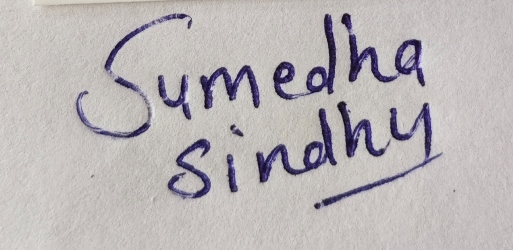 Sumedha
Sindhu